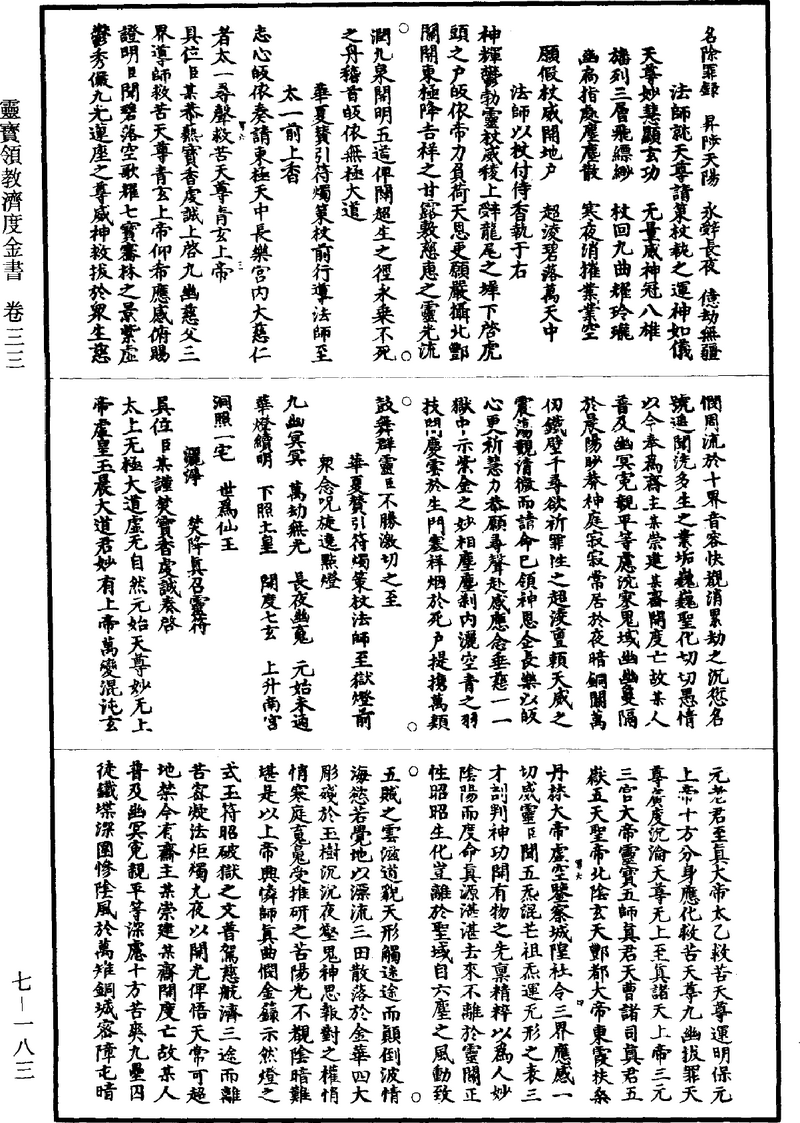 靈寶領教濟度金書 卷三三
七—一八三
名除罪録 昇陟天陽 永辭長夜 億劫無疆
法師就天尊請策杖執之運神如儀
天尊妙慧顯玄功 无量威神冠八雄
旛列三層飛縹緲 杖回九曲耀玲瓏
幽扃指處塵塵散 寒夜消摧業業空
願假杖威開地戸 超淩碧落萬天中
法師以杖付侍香執于右
神輝鬱勃靈杖威稜上辭龍尾之墀下啓虎
頭之户皈依帝力負荷天恩更願嚴攝北酆
關開東極降吉祥之甘露敷慈惠之靈光流
潤九泉開明五道俾開超生之徑永乗不死
之丹稽首皈依無極大道
華夏賛引符燭策杖前行導法師至
太一前上香
志心皈依奏請東極天中長樂宫内大慈仁
者太一尋聲救苦天尊青玄上帝
具位臣某恭爇寶香虔誠上啓九幽慈父三
界導師救苦天尊青玄上帝仰希應感俯賜
證明臣聞碧落空歌耀七寶騫林之景紫虚
鬱秀儼九光蓮座之尊威神救拔於衆生慈
憫周流於十界音容快覩消累劫之沉愆名
號遥聞洗多生之業垢巍巍聖化切切愚情
以今奉為齋主某崇建某齋開度亡故某人
普及幽冥寃親平等慮沉寒鬼域幽幽夐隔
於晨陽眇莽神庭寂寂常居於夜暗銅關萬
仞鐵壁千尋欲祈罪性之超淩亶頼天威之
震蕩觀清微而請命已領神恩企長樂以皈
心更祈慧力恭願尋聲赴感應念垂慈一一
獄中示紫金之妙相塵塵刹内灑空青之羽
技門慶雲於生門塞祥烟於死戸提携萬類
鼓舞群靈臣不勝激切之至
華夏賛引符燭策杖法師至獄燈前
衆念呪旋遶點燈
九幽冥冥 萬劫無光 長夜幽寃 元始未通
華燈續明 下照土皇 開度七玄 上升南宫
洞照一宅 世為仙王
灑淨 焚降真召靈符
具位臣某謹焚寶香虔誠奏啓
太上无極大道虚无自然元始天尊妙无上
帝虚皇玉晨大道君妙有上帝萬變混沌玄
元老君至真大帝太乙救苦天尊運明保元
上帝十方分身應化救苦天尊九幽拔罪天
尊廣度沉淪天尊无上至真諸天上帝三元
三官大帝靈寶五師真君天曹諸司真君五
嶽五天聖帝北陰玄天酆都大帝東霞扶桑
丹林大帝虚空鑒察城隍社令三界應感一
切威靈臣聞五炁混芒祖炁運无形之表三
才剖判神功開有物之先禀精粹以為人妙
陰陽而度命真源湛湛去來不離於靈關正
性昭昭生化豈離於聖域自六塵之風動致
五賊之雲滋道貌天形觸迷途而顛倒波情
海慾若覺地以漂流三田散落於金華四大
彫殘於玉樹沉沉夜壑鬼神思報對之權悄
悄寒庭寃寃受推研之苦陽光不覩陰暗難
堪是以上帝興憐師真曲憫金籙示然燈之
式玉符昭破獄之文普駕慈航濟三途而離
苦容凝法炬燭九夜以開光俾悟天常可超
地禁今有齋主某崇建某齋開度亡故某人
普及幽冥寃親平等深慮十方苦爽九壘囚
徒鐵堞深圍慘陰風於萬雉銅城密障屯暗